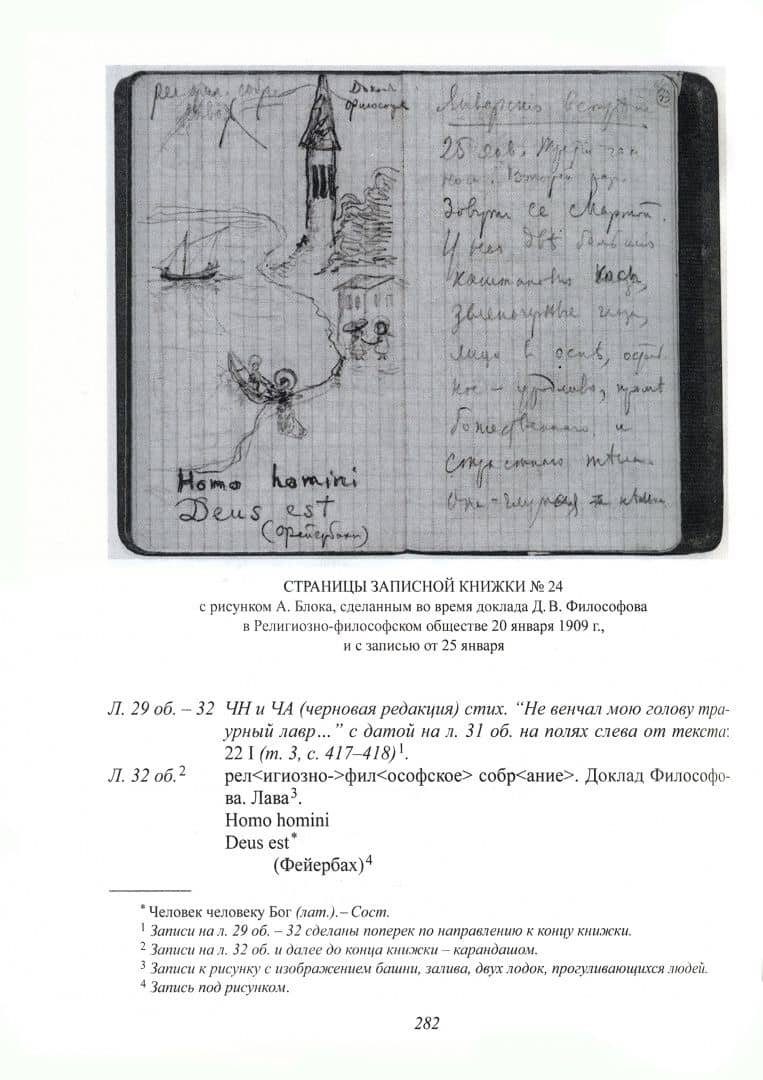 рел. фил. собр.
Лава
Доклад
Философова
Homo homini
Deus est
(Фейербах)
33
25 янв.
Зовут ее Мартой.
У нея две большия
каштановыя косы,
зеленочерные глаза,
лицо в оспе, осталь
ное – уродливо, кроме
божественного и
страстного тела.
Она – глупая
СТРАНИЦЫ ЗАПИСНОЙ КНИЖКИ № 24
с рисунком А. Блока, сделанным во время доклада Д. В. Философова
в Религиозно-философском обществе 20 января 1909 г.,
и с записью от 25 января
Л. 29 об. – 32 ЧН и ЧА (черновая редакция) стих. “Не венчал мою голову тра-
урный лавр…” с датой на л. 31 об. на полях слева от текста:
22 I (т. 3, с. 417–418)¹.
Л. 32 об.² рел<игиозно->фил<ософское> собр<ание>. Доклад Философо-
ва. Лава³.
Homo homini
Deus est*
(Фейербах)⁴
* Человек человеку Бог (лат.). – Сост.
¹ Записи на л. 29 об. – 32 сделаны поперек по направлению к концу книжки.
² Записи на л. 32 об. и далее до конца книжки – карандашом.
³ Записи к рисунку с изображением башни, залива, двух лодок, прогуливающихся людей.
⁴ Запись под рисунком.
282